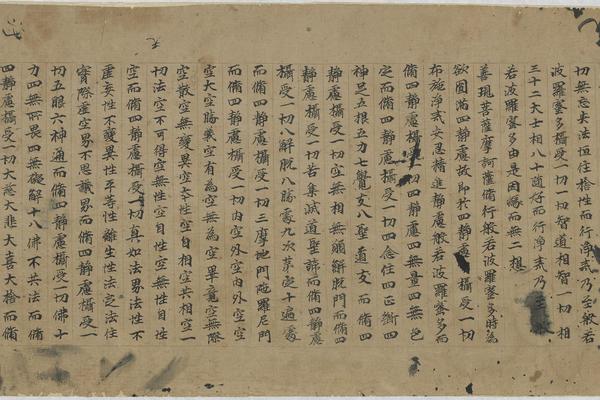 切無忘失法恒住捨性而行淨戒乃至般若
波羅蜜多攝受一切一切智道相智一切相
三十二大士相八十隨好而行淨戒乃
若波羅蜜多由是因緣而無二想
善現菩薩摩訶薩脩行般若波羅蜜多時為
欲圓滿四靜慮故即於四靜慮攝受一切
布施淨戒安忍精進靜慮般若波羅蜜多而
脩四靜慮攝受一切四靜慮四無量四無色
定而脩四靜慮攝受一切四念住四正斷四
神足五根五力七覺支八聖道支而脩四
靜慮攝受一切空無相無願解脫門而脩四
靜慮攝受一切苦集滅道聖諦而脩四靜慮
攝受一切八解脫八勝處九次第定十遍處
而脩四靜慮攝受一切三摩地門陀羅尼門
而脩四靜慮攝受一切內空外空內外空空
空大空勝義空有為空無為空畢竟空無際
空散空無變異空本性空自相空共相空一
切法空不可得空無性空自性空無性自性
空而脩四靜慮攝受一切真如法界法性不
虛妄性不變異性平等性離生性法定法住
實際虛空界不思議界而脩四靜慮攝受一
切五眼六神通而脩四靜慮攝受一切佛十
力四無所畏四無礙解十八佛不共法而脩
四靜慮攝受一切大慈大悲大喜大捨而脩